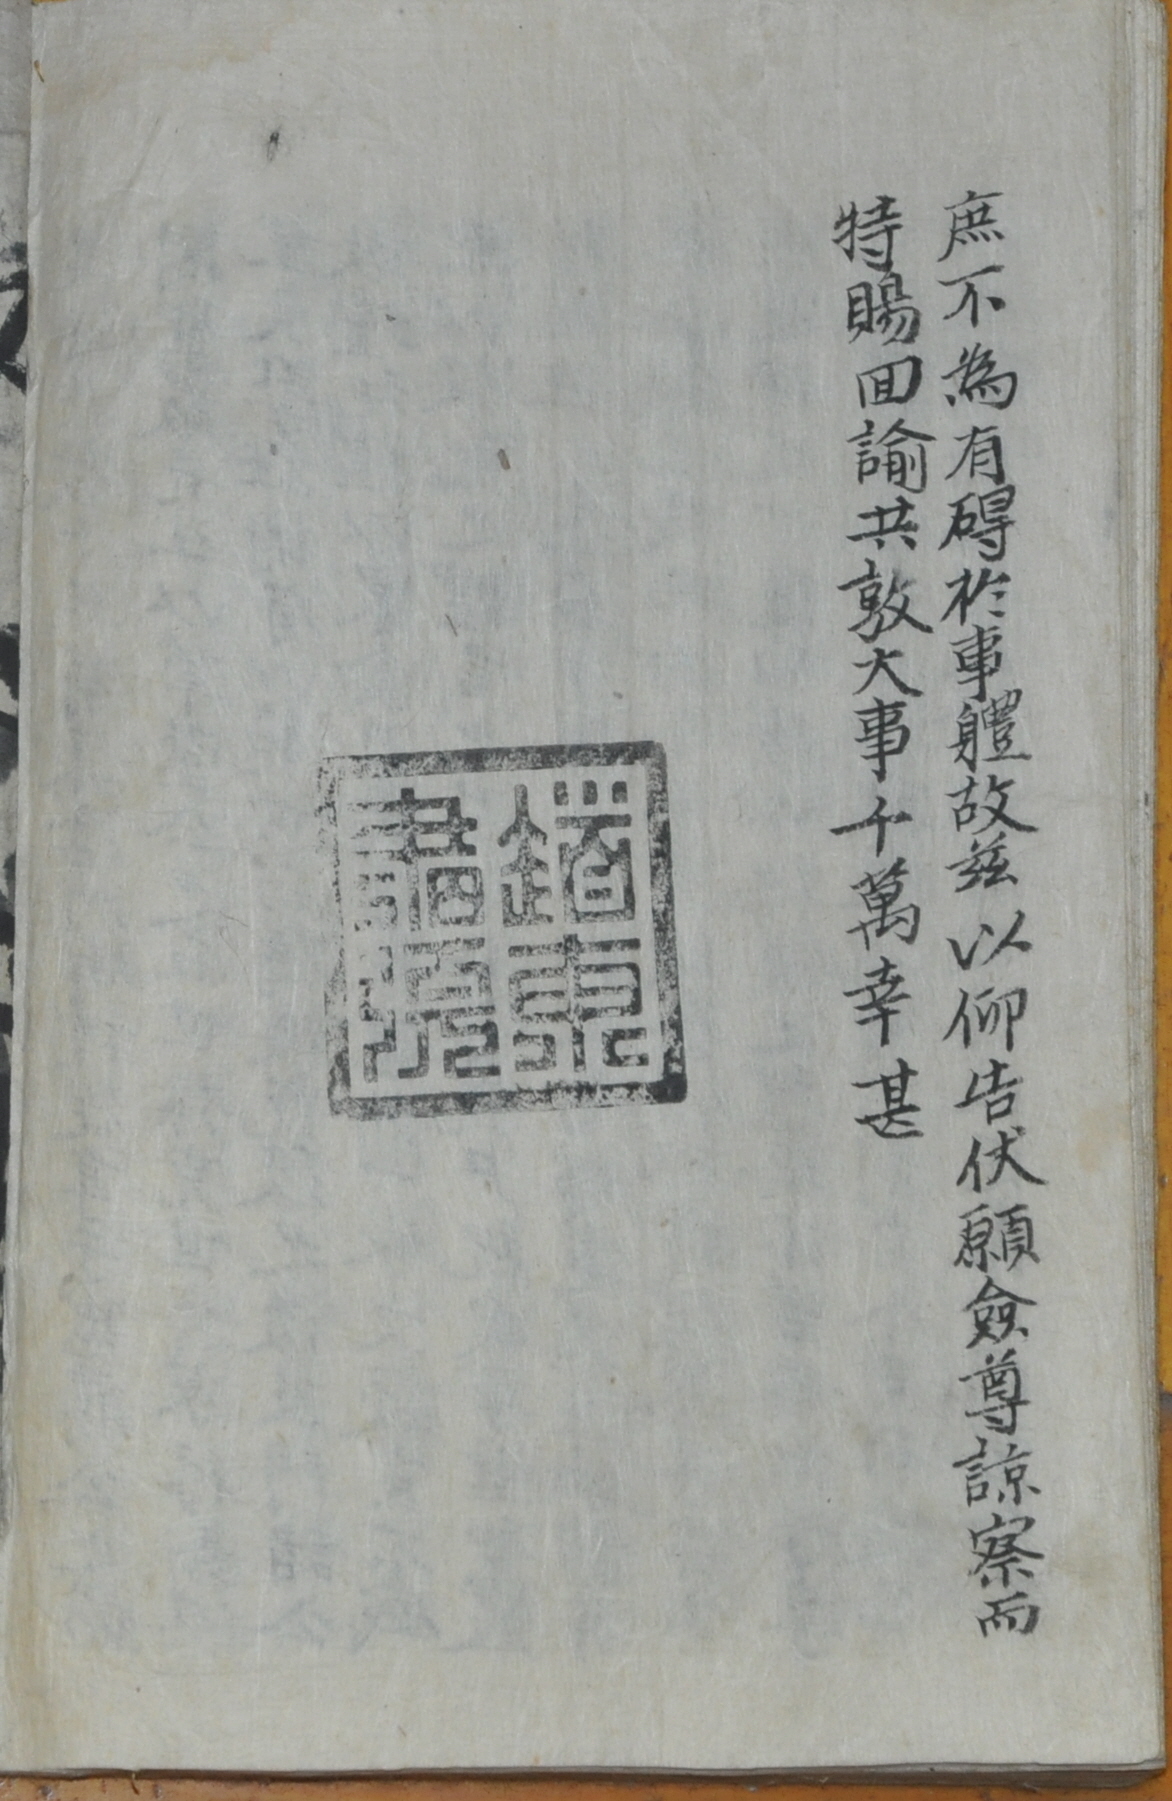 庶不為有碍於事體故玆以仰告伏願僉尊諒察而
特賜回諭共敦大事千萬幸甚
道東書院